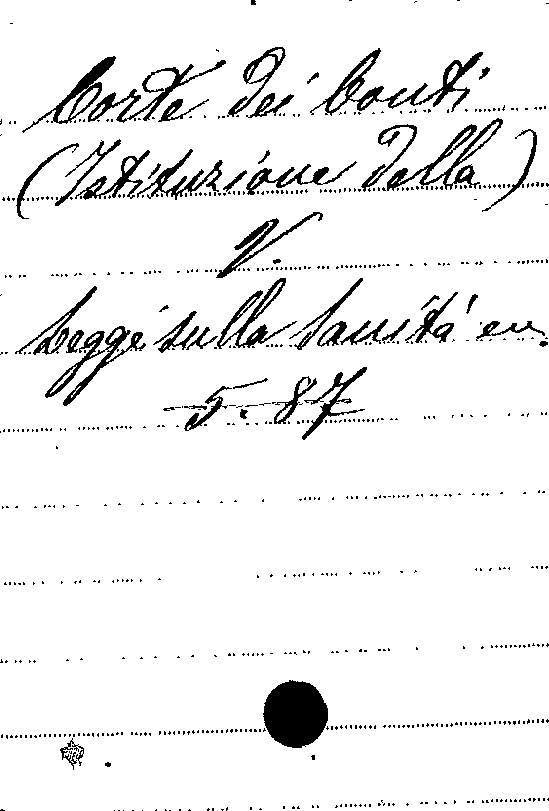 Corte dei Conti
(Istituzione della)
V.
Legge sulla Sanità en.
5.87